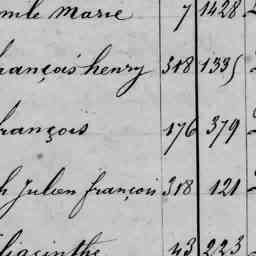 Marie 7 1428
françois henry 318 1335
françois 176 379
h Julien françois 318 121
hiacinthe 43 223